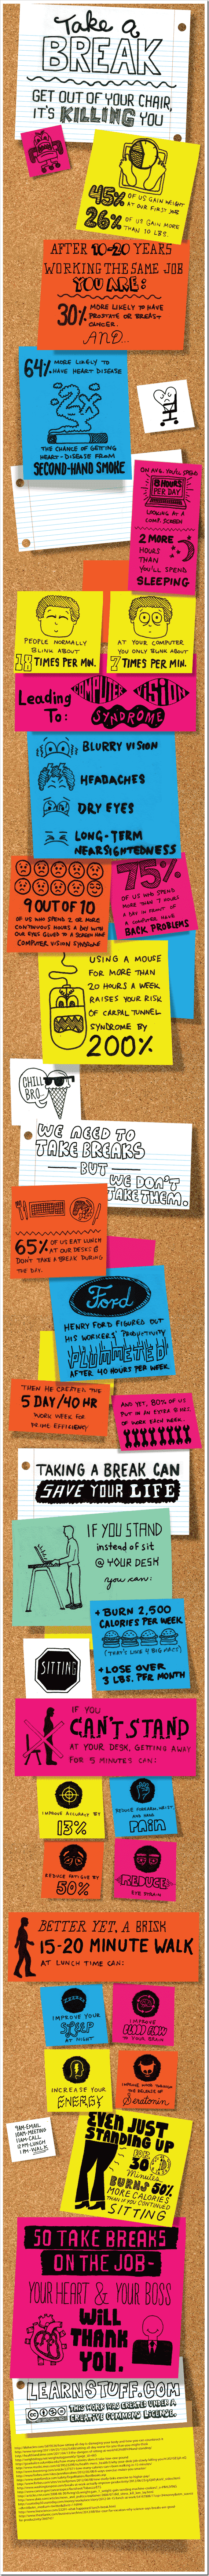 Take a
BREAK
GET OUT OF YOUR CHAIR,
IT'S KILLING YOU
45% OF US GAIN WEIGHT
AT OUR FIRST JOB
26% OF US GAIN MORE
THAN 10 LBS.
AFTER 10-20 YEARS
WORKING THE SAME JOB
YOU ARE:
30% MORE LIKELY TO HAVE
PROSTATE OR BREAST
CANCER.
AND...
64% MORE LIKELY TO
HAVE HEART DISEASE
THE CHANCE OF GETTING
HEART-DISEASE FROM
SECOND-HAND SMOKE
ON AVG. YOU'LL SPEND
8 HOURS
PER DAY
LOOKING AT A
COMP. SCREEN
2 MORE
HOURS
THAN
YOU'LL SPEND
SLEEPING
PEOPLE NORMALLY
BLINK ABOUT
18 TIMES PER MIN.
AT YOUR COMPUTER
YOU ONLY BLINK ABOUT
7 TIMES PER MIN.
Leading
To:
COMPUTER VISION
SYNDROME
BLURRY VISION
HEADACHES
DRY EYES
LONG-TERM
NEARSIGHTEDNESS
9 OUT OF 10
OF US WHO SPEND 2 OR MORE
CONTINUOUS HOURS A DAY WITH
OUR EYES GLUED TO A SCREEN HAVE
COMPUTER VISION SYNDROME
75%
OF US WHO SPEND
MORE THAN 7 HOURS
A DAY IN FRONT OF
A COMPUTER HAVE
BACK PROBLEMS
USING A MOUSE
FOR MORE THAN
20 HOURS A WEEK
RAISES YOUR RISK
OF CARPAL TUNNEL
SYNDROME BY
200%
CHILL
BRO
WE NEED TO
TAKE BREAKS
BUT
WE DON'T
TAKE THEM.
65% OF US EAT LUNCH
AT OUR DESKS &
DON'T TAKE A BREAK DURING
THE DAY.
Ford
HENRY FORD FIGURED OUT
HIS WORKERS' PRODUCTIVITY
PLUMMETED
AFTER 40 HOURS PER WEEK
THEN HE CREATED THE
5 DAY/40 HR
WORK WEEK FOR
PRIME EFFICIENCY
AND YET, 80% OF US
PUT IN AN EXTRA 8 HRS
OF WORK EACH WEEK.
TAKING A BREAK CAN
SAVE YOUR LIFE
IF YOU STAND
instead of sit
@ YOUR DESK
you can:
+ BURN 2,500
CALORIES PER WEEK
(THAT'S LIKE 4 BIG MACS)
+ LOSE OVER
3 LBS. PER MONTH
SITTING
IF YOU
CAN'T STAND
AT YOUR DESK, GETTING AWAY
FOR 5 MINUTES CAN:
IMPROVE ACCURACY BY
13%
REDUCE FOREARM, WRIST
AND HAND
PAIN
REDUCE FATIGUE BY
50%
REDUCE
EYE STRAIN
BETTER YET, A BRISK
15-20 MINUTE WALK
AT LUNCH TIME CAN:
IMPROVE YOUR
SLEEP
AT NIGHT
IMPROVE
BLOOD FLOW
TO YOUR BRAIN
INCREASE YOUR
ENERGY
IMPROVE MOOD THROUGH
THE RELEASE OF
Seratonin
9AM-EMAIL
10AM-MEETING
11AM-CALL
12PM-LUNCH
1PM-WALK
EVEN JUST
STANDING UP
FOR
30
Minutes
BURNS 50%
MORE CALORIES
THAN IF YOU CONTINUED
SITTING
SO TAKE BREAKS
ON THE JOB-
YOUR HEART & YOUR BOSS
WILL
THANK
YOU.
LEARNSTUFF.COM
THIS WORK WAS CREATED UNDER A
CREATIVE COMMONS LICENSE.